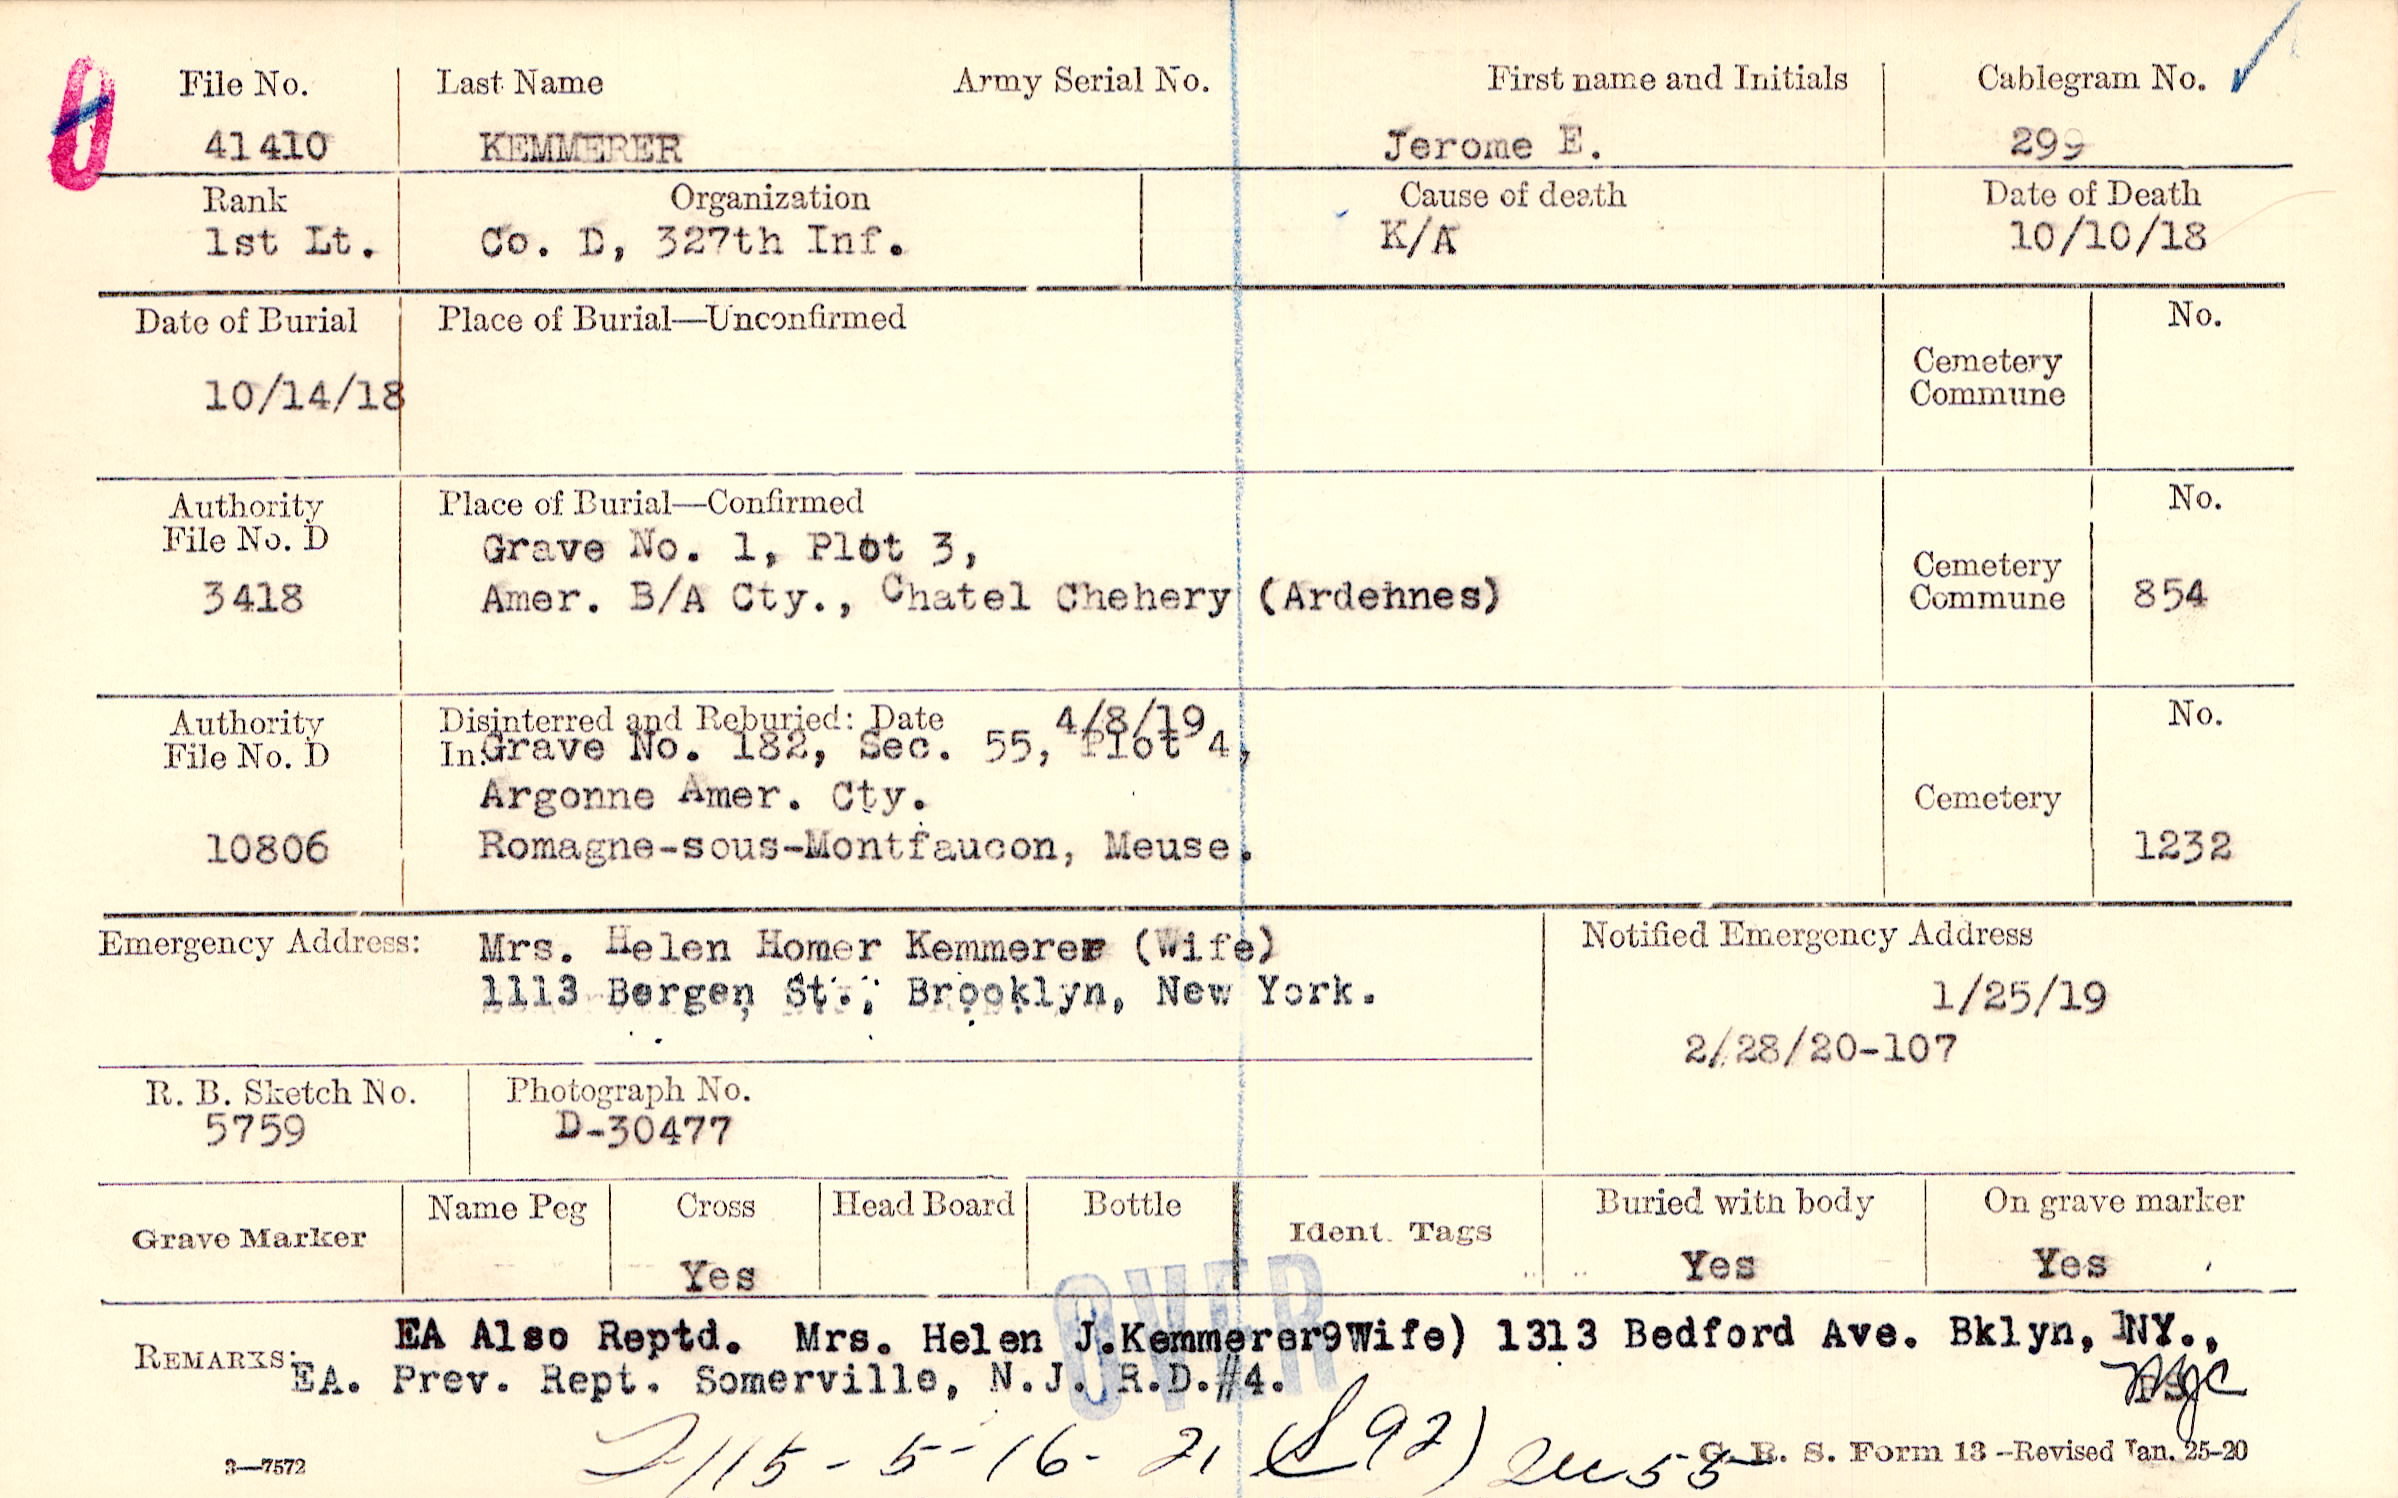 File No. Last Name Army Serial No. First name and Initials Cablegram No.
41410 KEMMERER Jerome E. 299
Rank Organization Cause of death Date of Death
1st Lt. Co. D, 327th Inf. K/A 10/10/18
Date of Burial Place of Burial—Unconfirmed No.
Cemetery
Commune
10/14/18
Authority Place of Burial—Confirmed No.
File No. D Grave No. 1, Plot 3,
Cemetery
3418 Amer. B/A Cty., Chatel Chehery (Ardennes) Commune 854
Authority Disinterred and Reburied: Date 4/8/19 No.
File No. D In: Grave No. 182, Sec. 55, Plot 4,
Argonne Amer. Cty. Cemetery
10806 Romagne-sous-Montfaucon, Meuse. 1232
Emergency Address: Mrs. Helen Homer Kemmerer (Wife) Notified Emergency Address
1113 Bergen St., Brooklyn, New York. 1/25/19
2/28/20-107
R. B. Sketch No. Photograph No.
5759 D-30477
Name Peg Cross Head Board Bottle Buried with body On grave marker
Grave Marker Ident. Tags
Yes Yes Yes
OVER
REMARKS: EA Also Reptd. Mrs. Helen J.Kemmerer9Wife) 1313 Bedford Ave. Bklyn, NY.,
EA. Prev. Rept. Somerville, N.J. R.D.#4.
115-5-16-21 92) Sec 55
3—7572 G. R. S. Form 13 —Revised Jan. 25-20